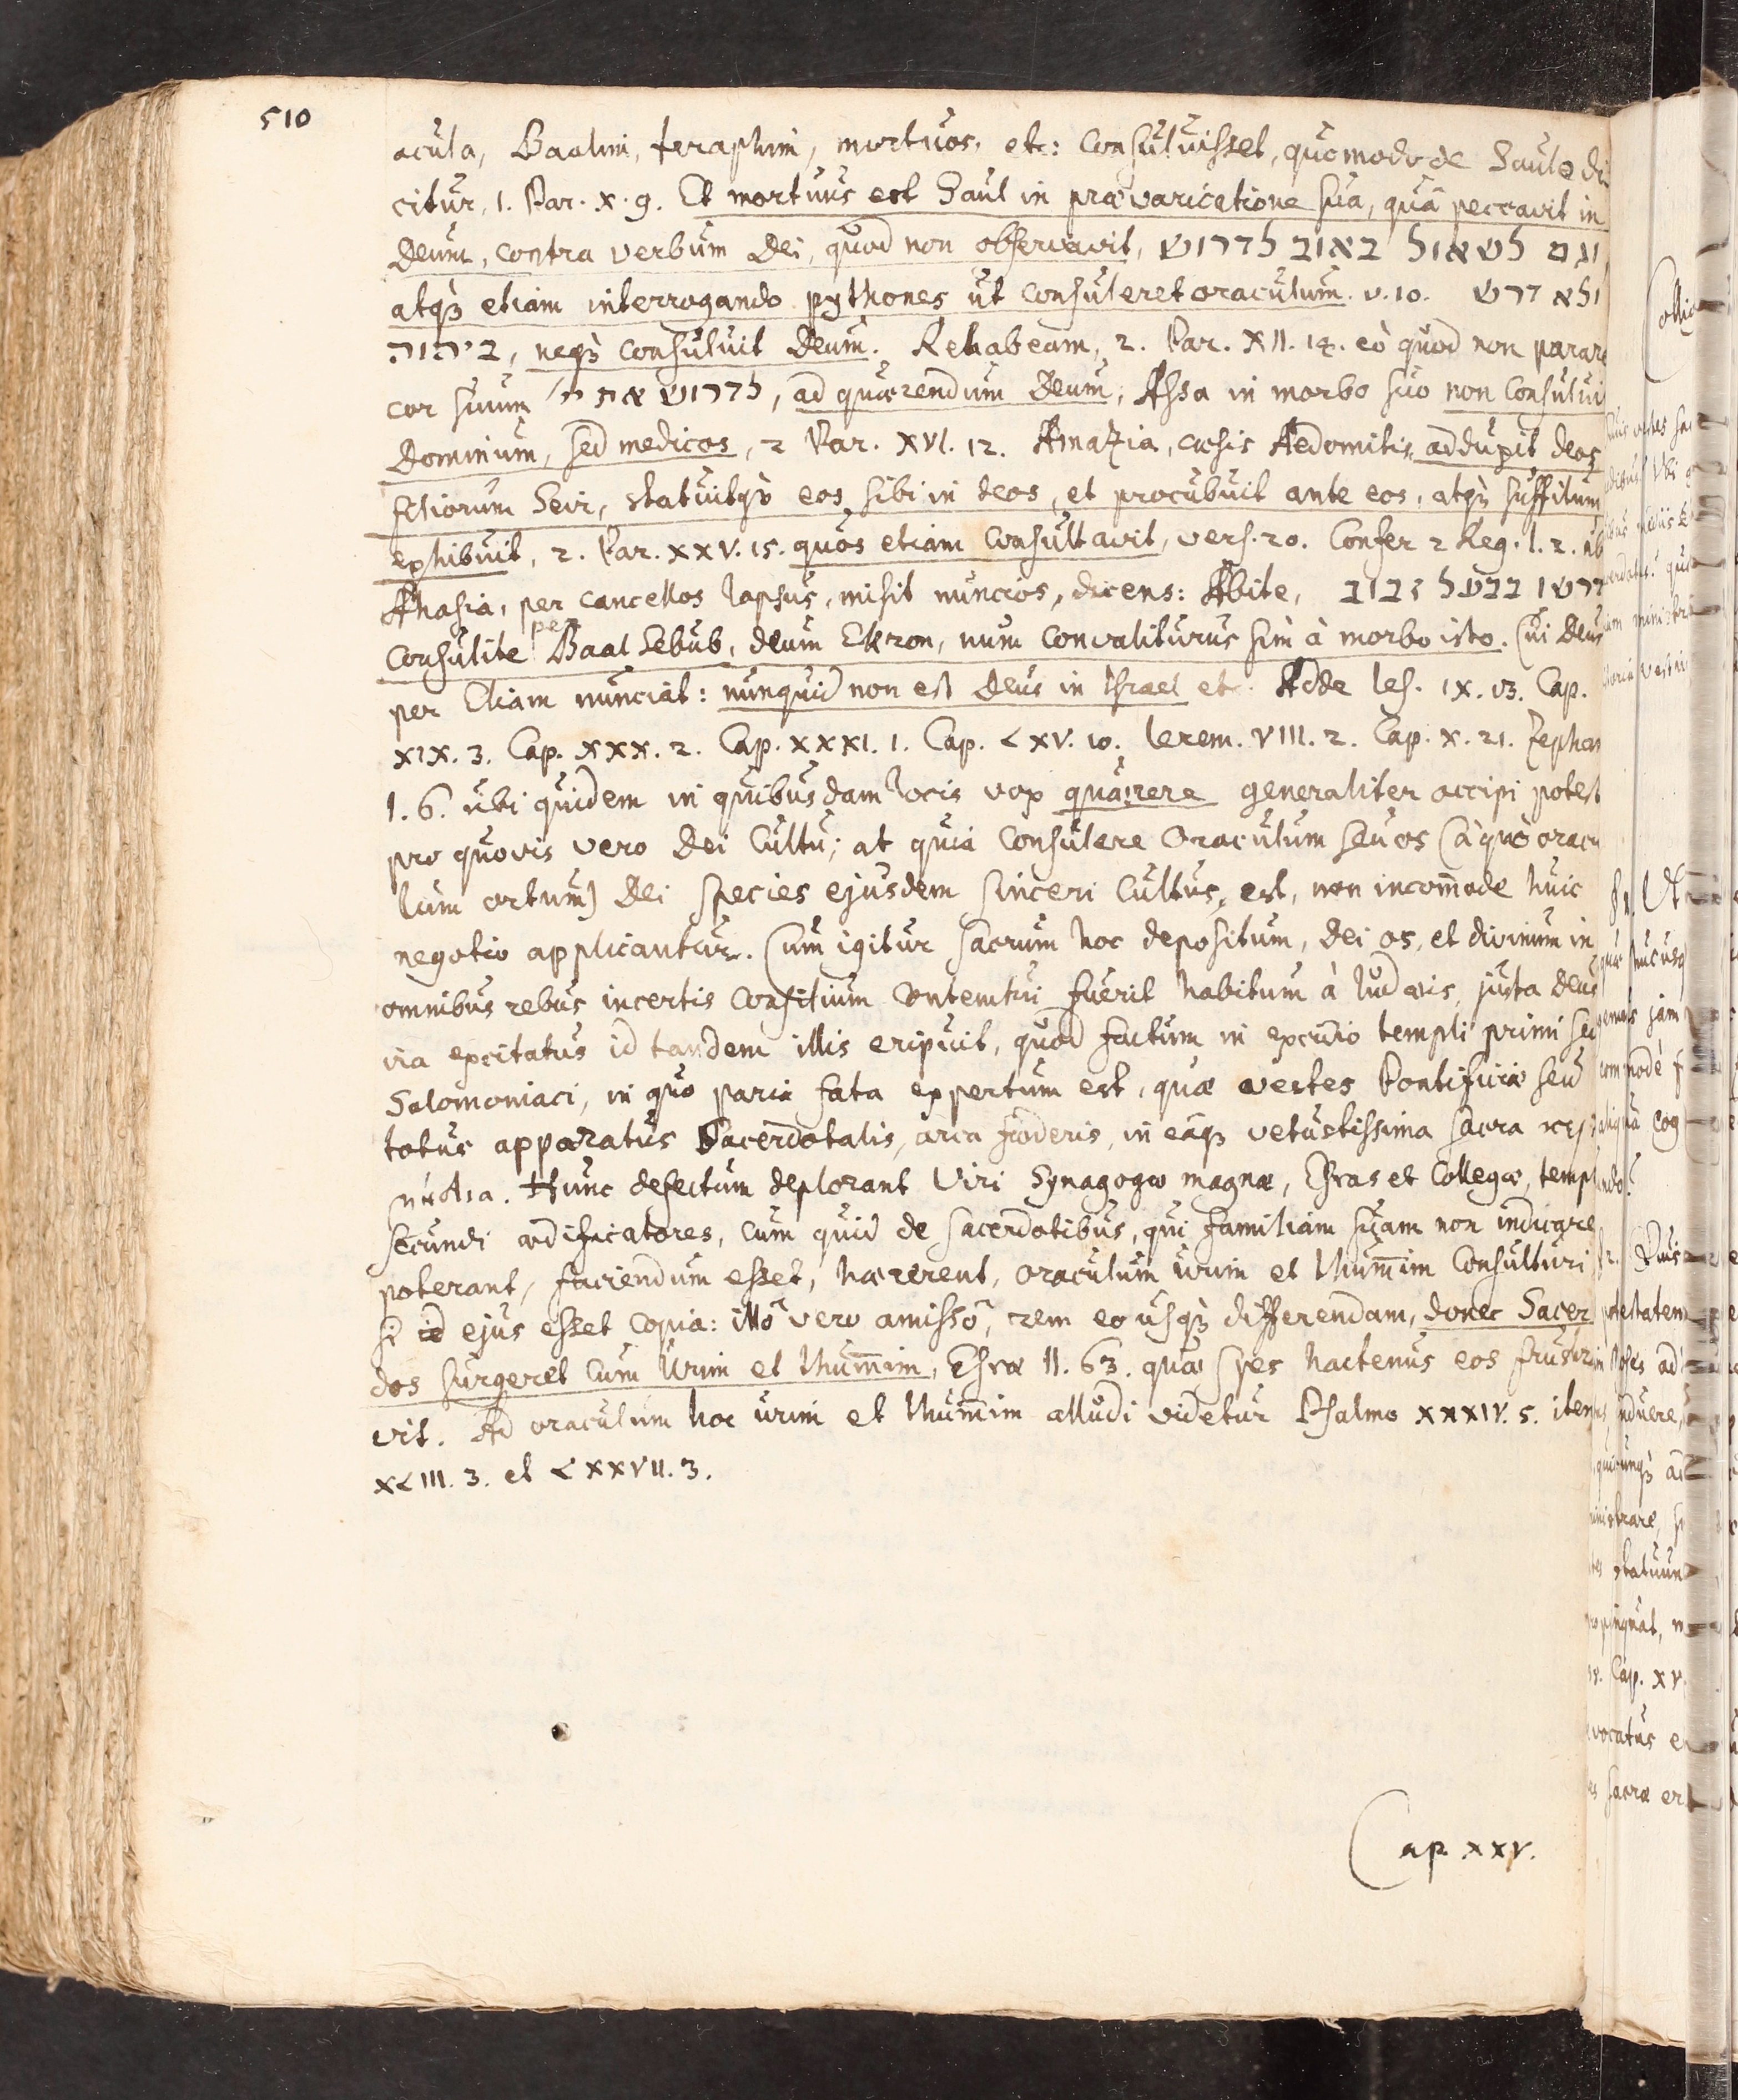 510
acula, Baalim, teraphim, mortuos, etc: consuluisset, quomodo de Saulo di
citur, 1. Par. X. 9. Et mortuus est Saul in prævaricatione sua, quâ peccavit in
Deum, contra verbum Dei, quod non observavit, וגם לשאול באוב לדרוש
atq; etiam interrogando pythones ut consuleret oraculum. v. 10. ולא דרש
ביהוה, neq; consuluit Deum. Rehabeam, 2. Par. XII. 14. eò quod non parare
cor suum לדרוש את ה', ad quærendum Deum, Assa in morbo suo non consului
Dominum, sed medicos, 2 Par. XVI. 12. Amazia, cæsis Aedomitis, adduxit deos
filiorum Seir, statuitq; eos sibi in deos, et procubuit ante eos, atq; suffitum
exhibuit, 2. Par. XXV. 15. quos etiam consultavit, vers. 20. Confer 2 Reg. 1. 2. ub
Ahasia, per cancellos lapsus, misit nuncios, dicens: Abite, דרשו בבעל זבוב
consulite per Baal Sebub, deum Ekron, num convaliturus sim à morbo isto. Cui Deus
per Eliam nunciat: nunquid non est Deus in Israel etc. Adde Ies. IX. 13. Cap.
XIX. 3. Cap. XXX. 2. Cap. XXXI. 1. Cap. LXV. 10. Ierem. VIII. 2. Cap. X. 21. Zephan
1. 6. ubi quidem in quibusdam locis vox quærere generaliter accipi potest
pro quovis vero Dei cultu; at quia consulere Oraculum seu os (à quo oracu
lum ortum) Dei species ejusdem sinceri cultus, est, non incom̄ode huic
negotio applicantur. Cum igitur sacrum hoc depositum, Dei os, et divinum in
omnibus rebus incertis consilium contemtui fuerit habitum à Iudæis, justa Deus
ira excitatus id tandem illis eripuit, quod factum in excidio templi primi seu
Salomoniaci, in quo paria fata expertum est, quæ vestes Pontificiæ seu
totus apparatus Sacerdotalis, arca fœderis, in eaq; vetustissima sacra
Hunc defectum deplorant Viri Synagogæ magnæ, Esras et Collegæ, templ
secundi ædificatores, cum quid de sacerdotibus, qui familiam suam non indicare
poterant, faciendum esset, hærerent, oraculum Urim et Thum̄im consulturi
si id ejus esset copia: illô vero amissô, rem eo usq; differendam, donec Sacer
dos surgeret cum Urim et Thum̄im, Esræ II. 63. quæ spes hactenus eos frustra
vit. Ad oraculum hoc urim et thum̄im alludi videtur Psalmo XXXIV. 5. item
XLIII. 3. et LXXVII. 3.
Cap. XXV.